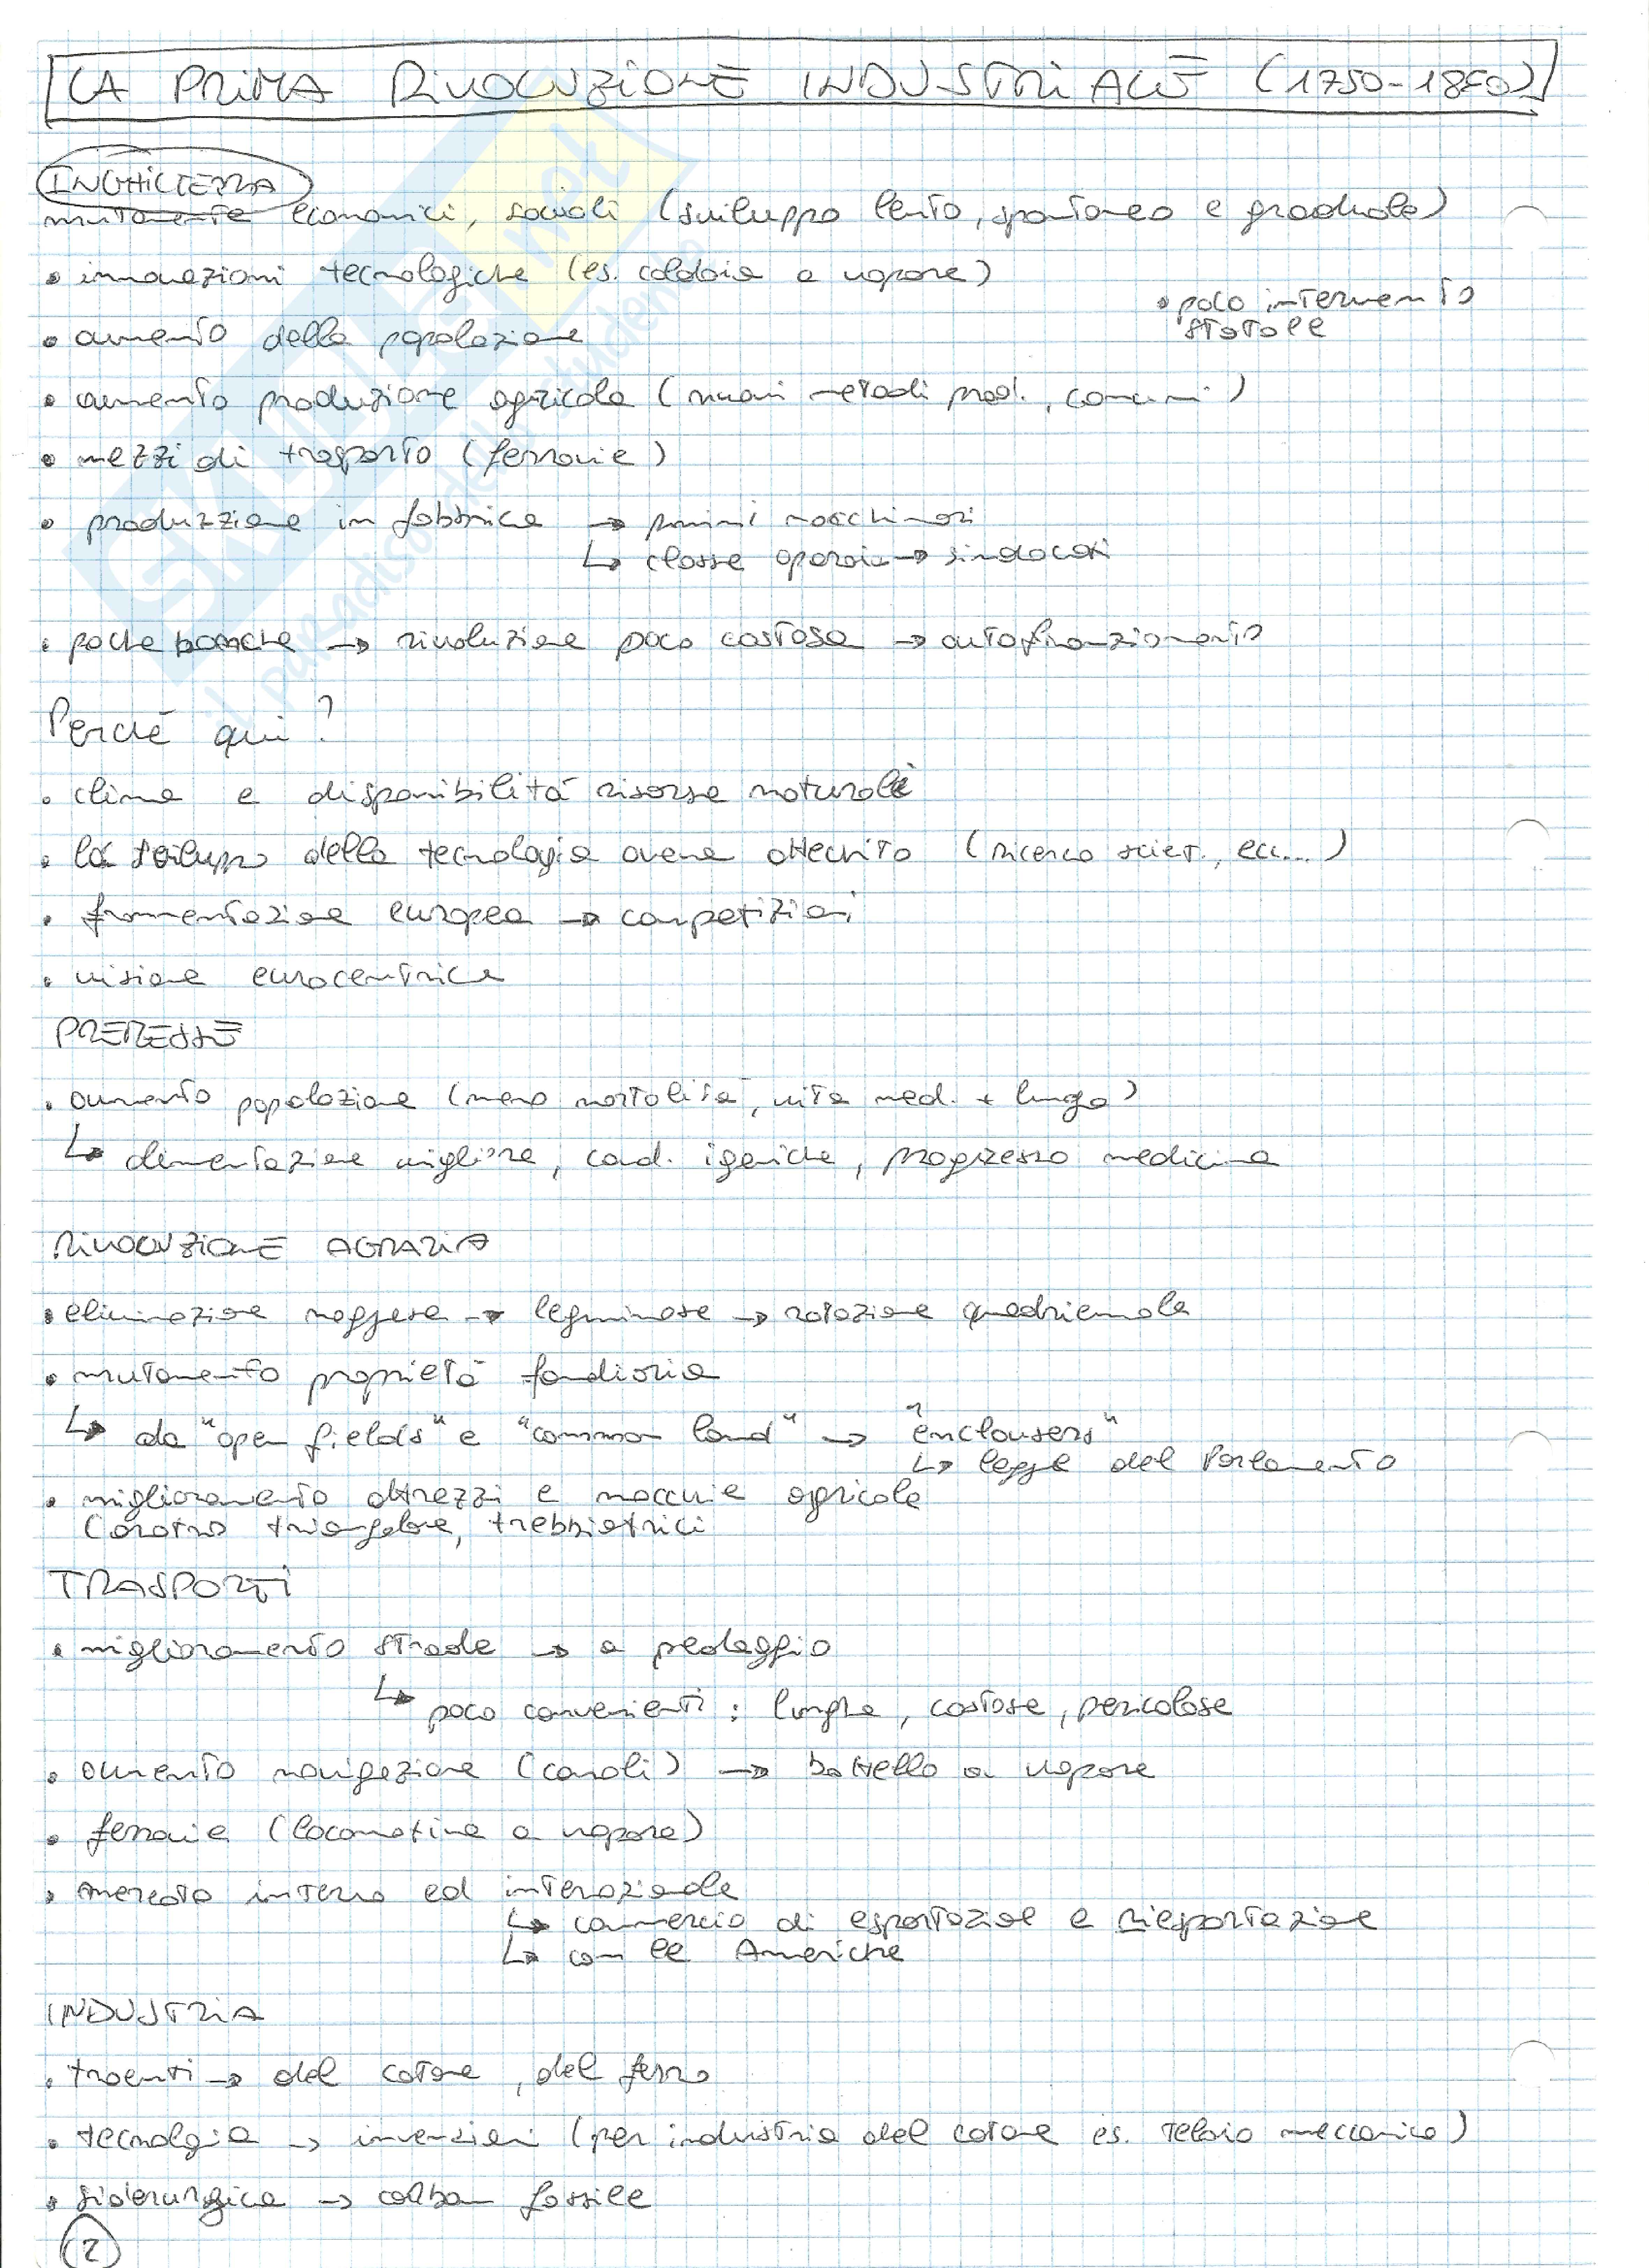 LA PRIMA RIVOLUZIONE INDUSTRIALE (1750-1850)
INGHILTERRA
mutamente economici, sociali (sviluppo lento, spontaneo e graduale)
• innovazioni tecnologiche (es. caldaia a vapore)
• poco intervento
statale
• aumento della popolazione
• aumento produzione agricola (nuovi metodi prod., concimi)
• mezzi di trasporto (ferrovie)
• produzzione in fabbrica → primi macchinari
↳ classe operaia → sindacati
• poche banche → rivoluzione poco costosa → autofinanziamento
Perché qui?
• clima e disponibilità risorse naturali
• lo sviluppo della tecnologia aveva attecchito (ricerca scient., ecc...)
• frammentazione europea → competizioni
• visione eurocentrica
PREMESSE
• aumento popolazione (meno mortalità, vita med. + lunga)
↳ alimentazione migliore, cond. igeniche, progresso medicina
RIVOLUZIONE AGRARIA
• eliminazione maggese → leguminose → rotazione quadriennale
• mutamento proprietà fondiaria
↳ da "open fields" e "common land" → "enclousers"
↳ legge del Parlamento
• miglioramento attrezzi e macchie agricole
(aratro triangolare, trebbiatrici
TRASPORTI
• miglioramento strade → a pedaggio
↳ poco convenienti: lunghe, costose, pericolose
• aumento navigazione (canali) → battello a vapore
• ferrovie (locomotiva a vapore)
• mercato interno ed internazionale
↳ commercio di esportazione e riesportazione
↳ con le Americhe
INDUSTRIA
• traenti → del cotone, del ferro
• tecnolgia → invenzioni (per industria del cotone es. telaio meccanico)
• siderurgica → carbon fossile
2
SKUOLA.net
il paradiso dello studente